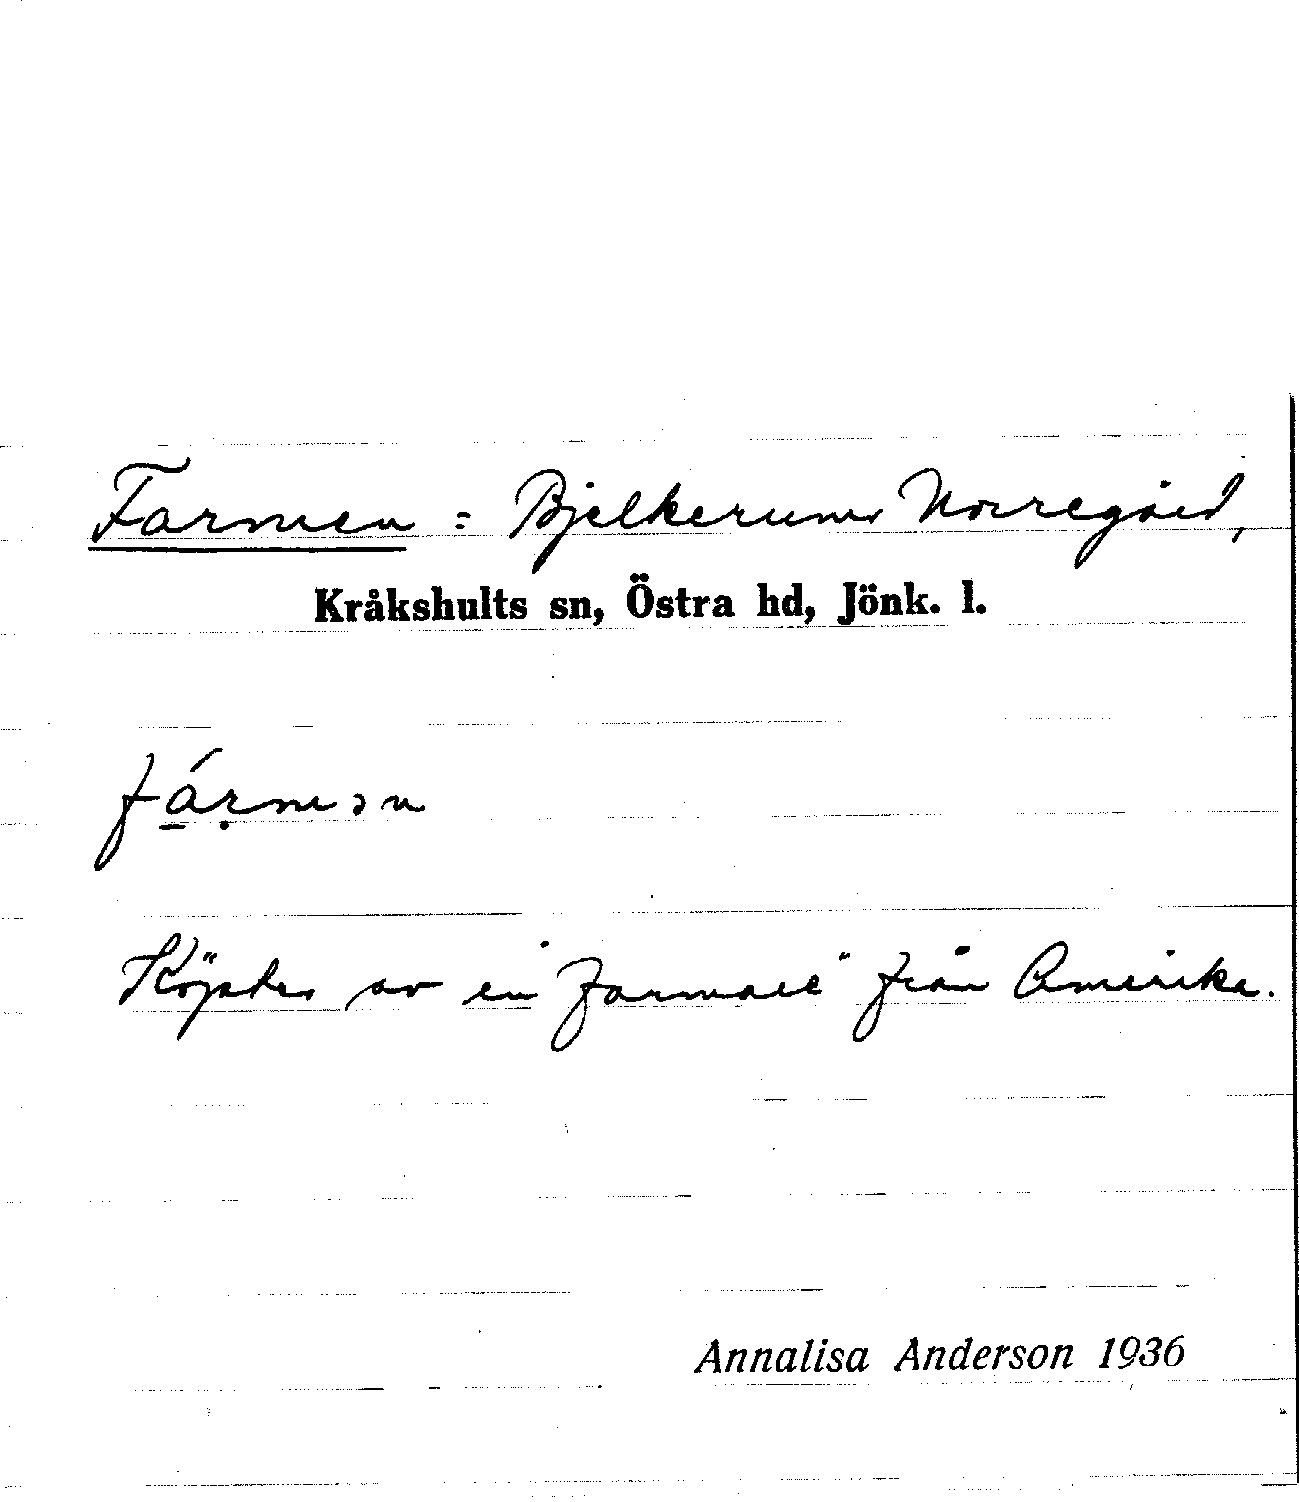 Farmen = Bjelkerums Norregård,
Kråkshults sn, Östra hd, Jönk. l.
fá̱rṃən
Köptes av en "farmare" från Amerika.
Annalisa Anderson 1936